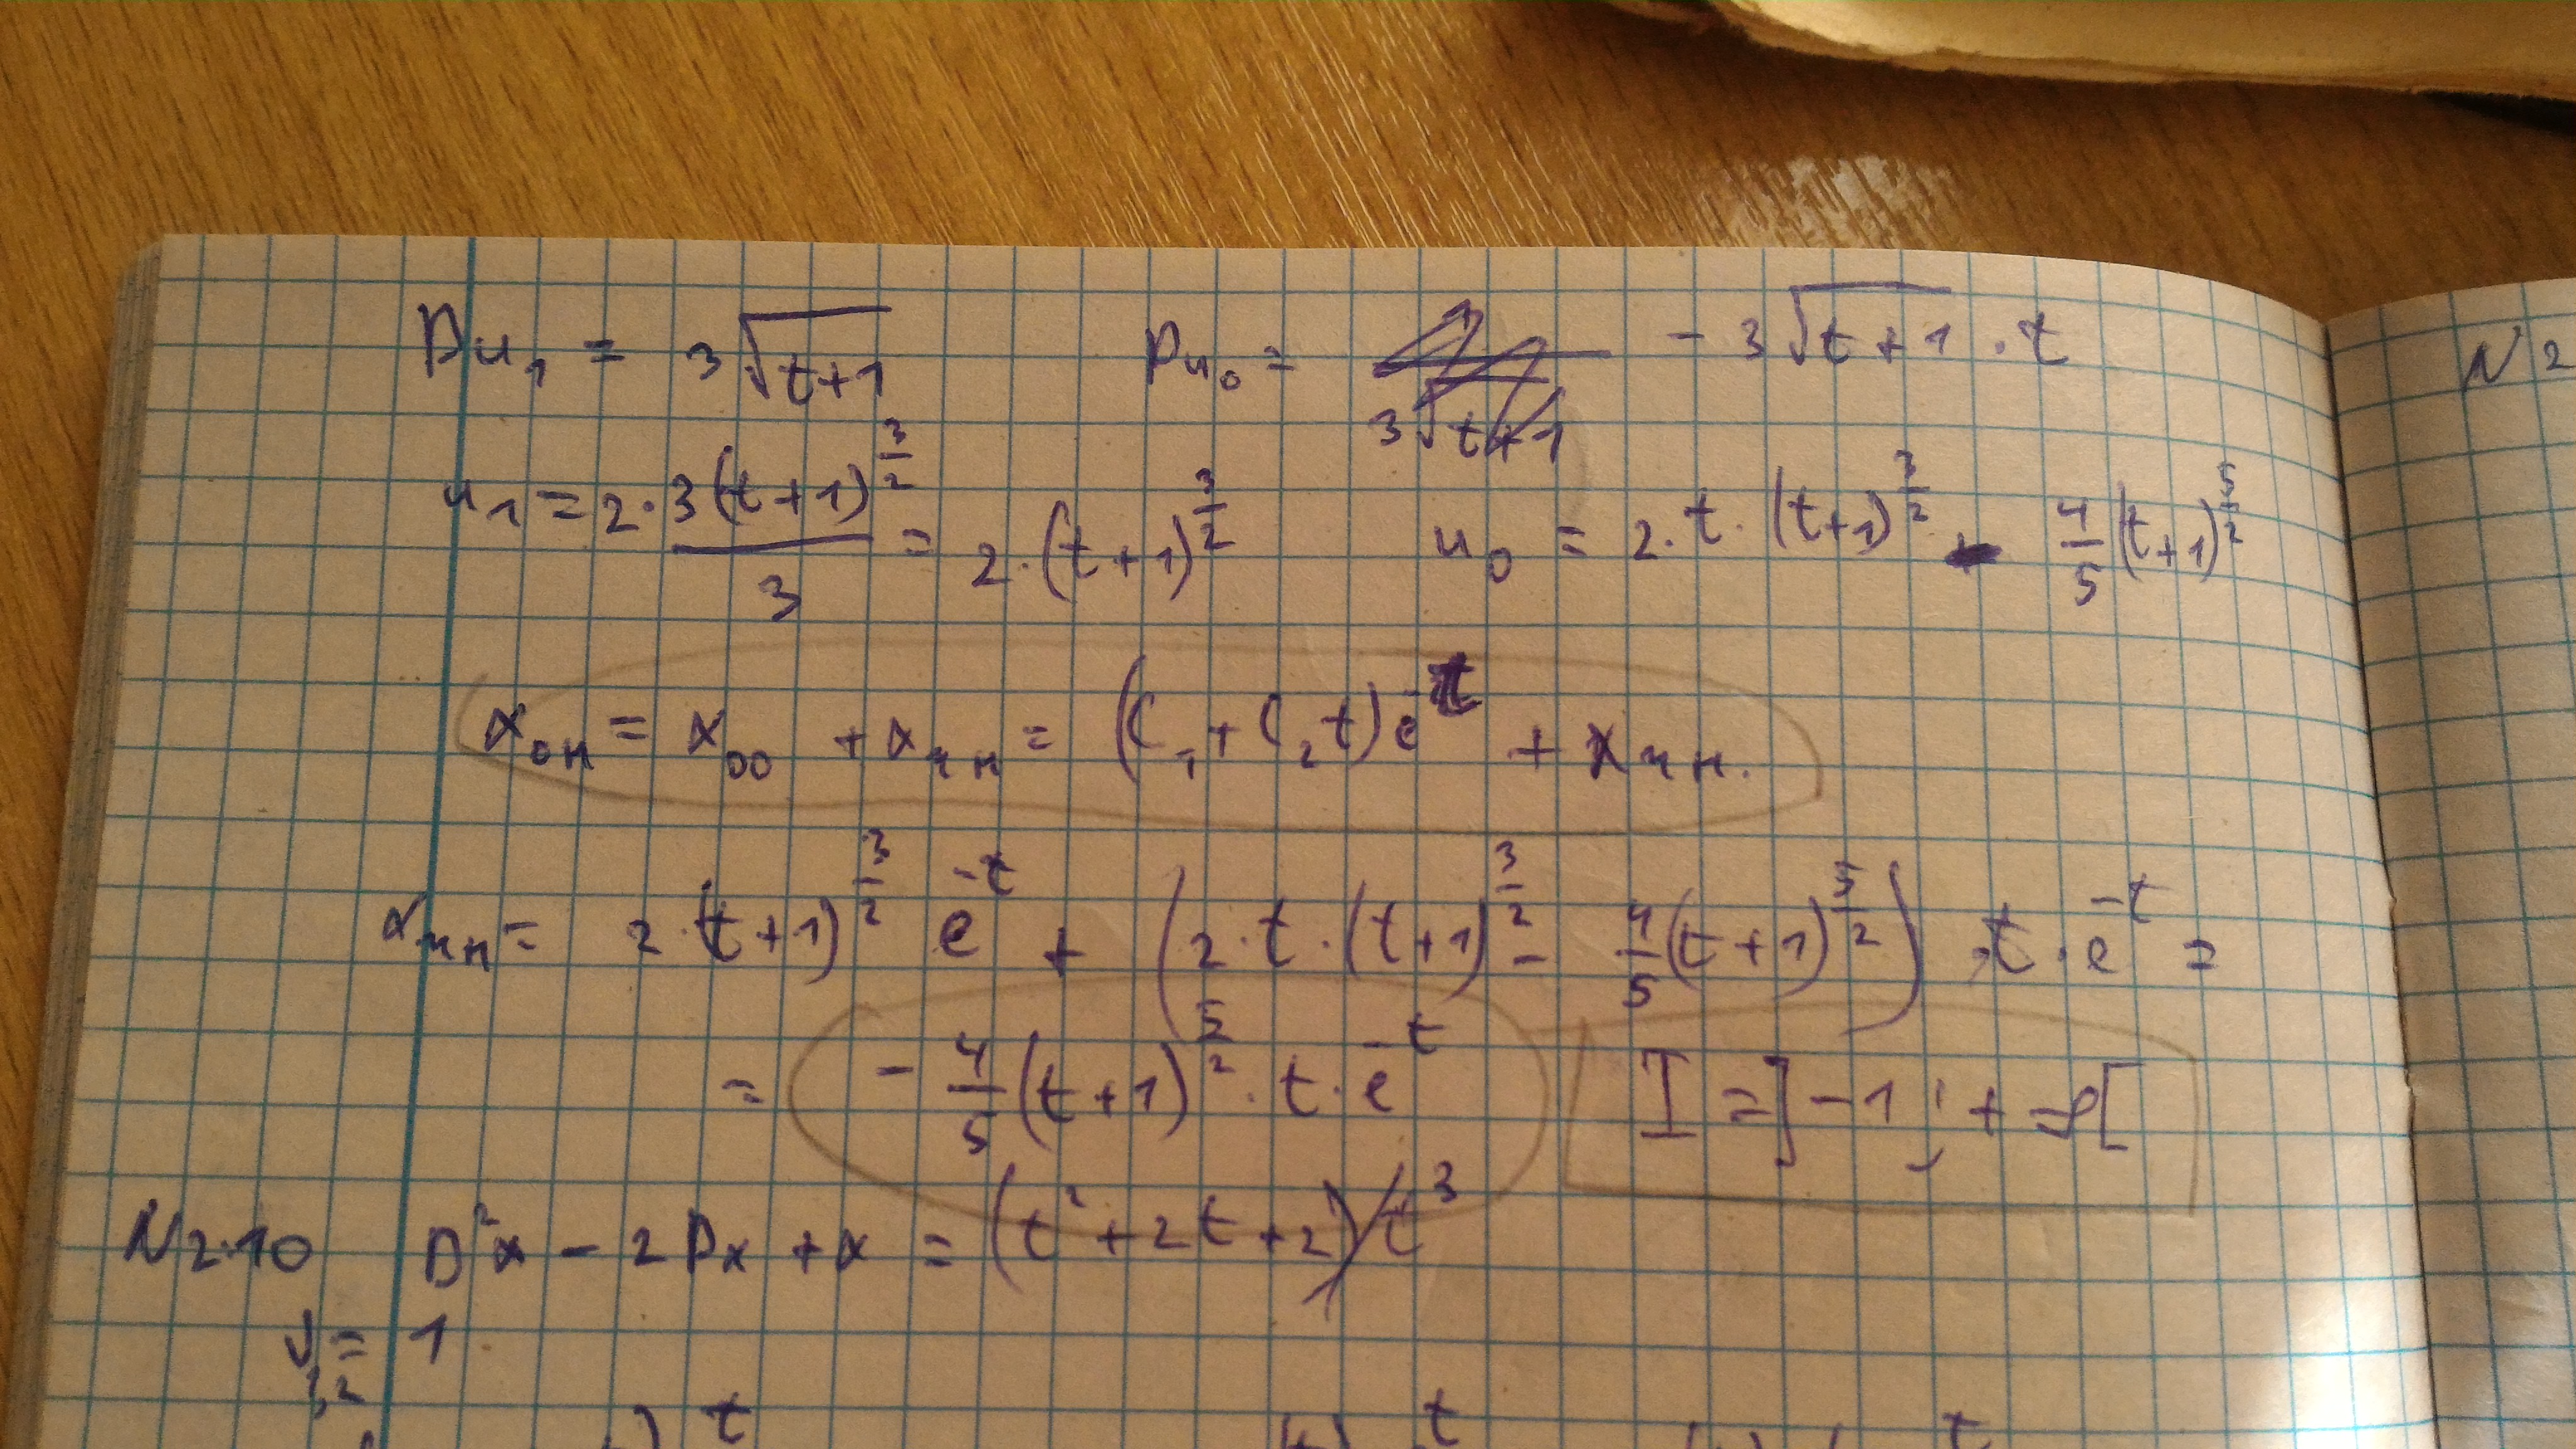 Du₁ = 3√(t+1) Du₀ = - 3√(t+1) · t
u₁ = 2 · 3(t+1)^(3/2) / 3 = 2·(t+1)^(3/2) u₀ = 2·t·(t+1)^(3/2) - 4/5 (t+1)^(5/2)
x_он = x_оо + x_чн = (C₁ + C₂t)e^(-t) + x_чн.
x_чн = 2·(t+1)^(3/2) e^(-t) + (2·t·(t+1)^(3/2) - 4/5 (t+1)^(5/2)) · t · e^(-t) =
= - 4/5 (t+1)^(5/2) · t · e^(-t) I = ]-1; +∞[
N2.10 D²x - 2Dx + x = (t² + 2t + 2)/t³
ν₁,₂ = 1
N 2